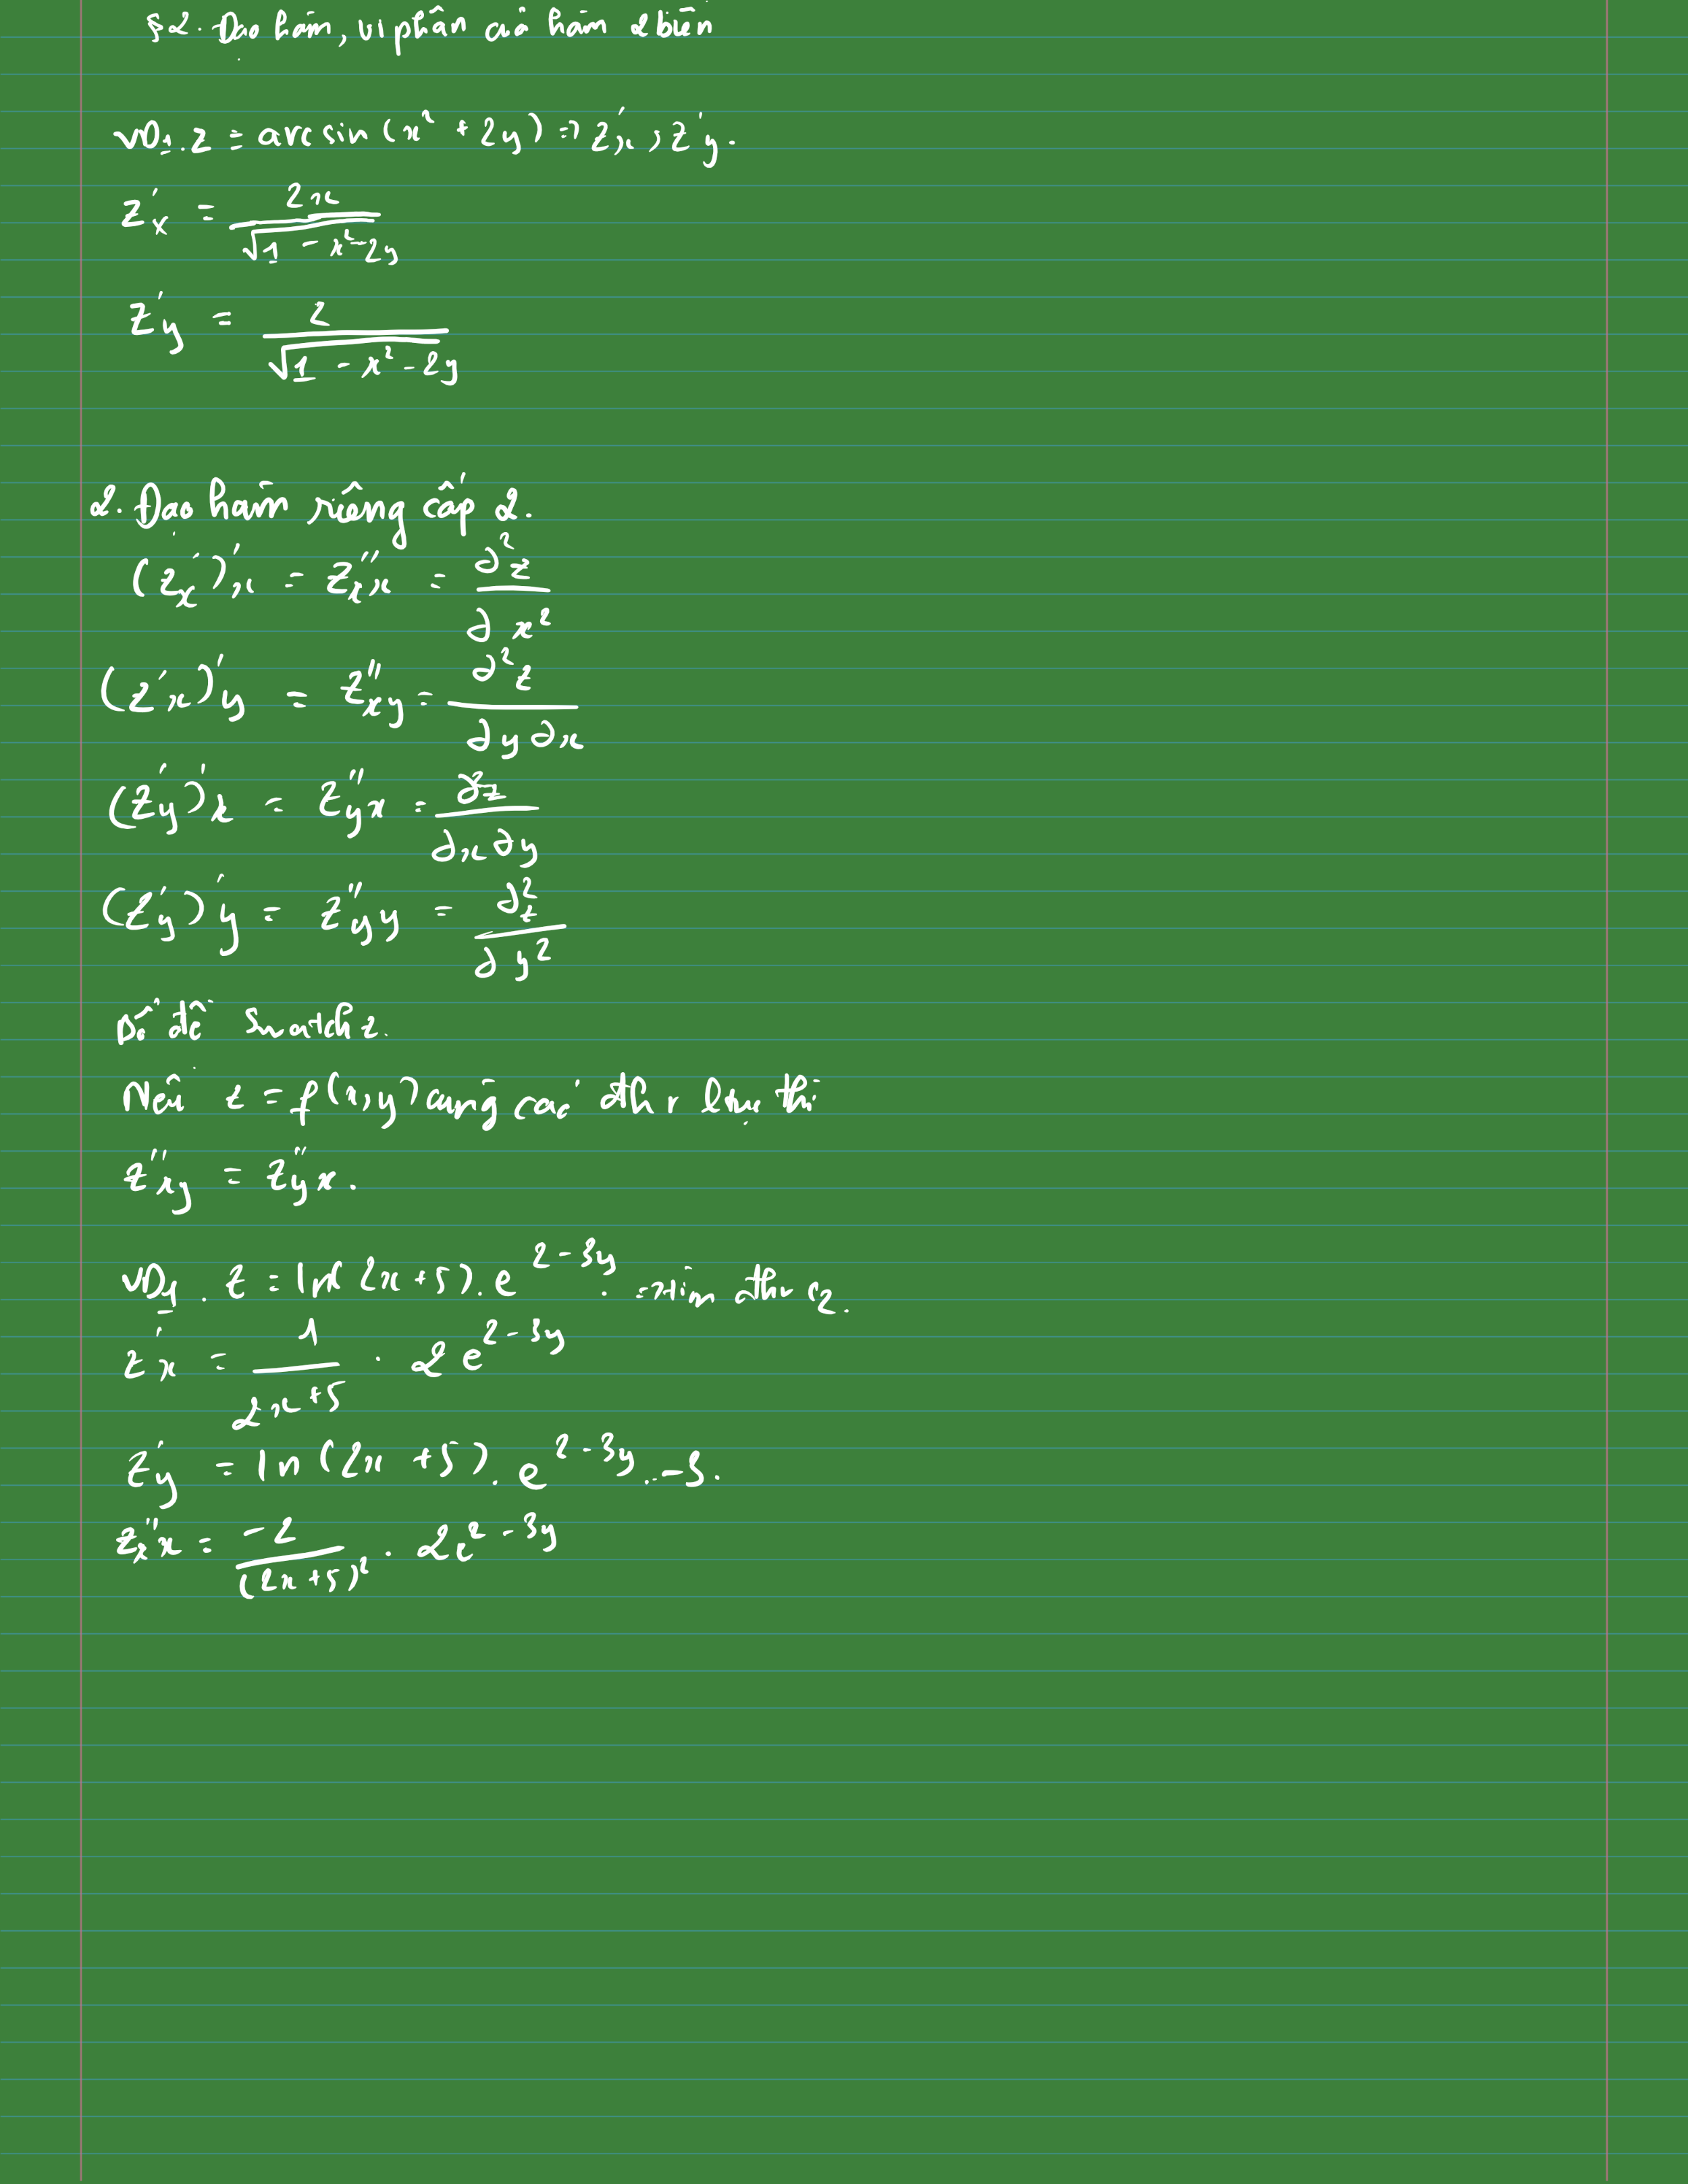 §2. Đạo hàm, vi phân của hàm 2 biến
VD1. z = arcsin(x² + 2y) => z'x ; z'y.
z'x = 2x / √(1 - x² - 2y)
z'y = 2 / √(1 - x² - 2y)
2. Đạo hàm riêng cấp 2.
(z'x)'x = z''xx = ∂²z / ∂x²
(z'x)'y = z''xy = ∂²z / ∂y∂x
(z'y)'x = z''yx = ∂²z / ∂x∂y
(z'y)'y = z''yy = ∂²z / ∂y²
Bổ đề Swatchz.
Nếu z = f(x,y) cùng các đhr ltục thì
z''xy = z''yx.
VD1. z = ln(2x+5).e^(2-3y). => tìm đhr c2.
z'x = 1 / (2x+5) . 2e^(2-3y)
z'y = ln(2x+5). e^(2-3y) . -3.
z''xx = -2 / (2x+5)² . 2e^(2-3y)